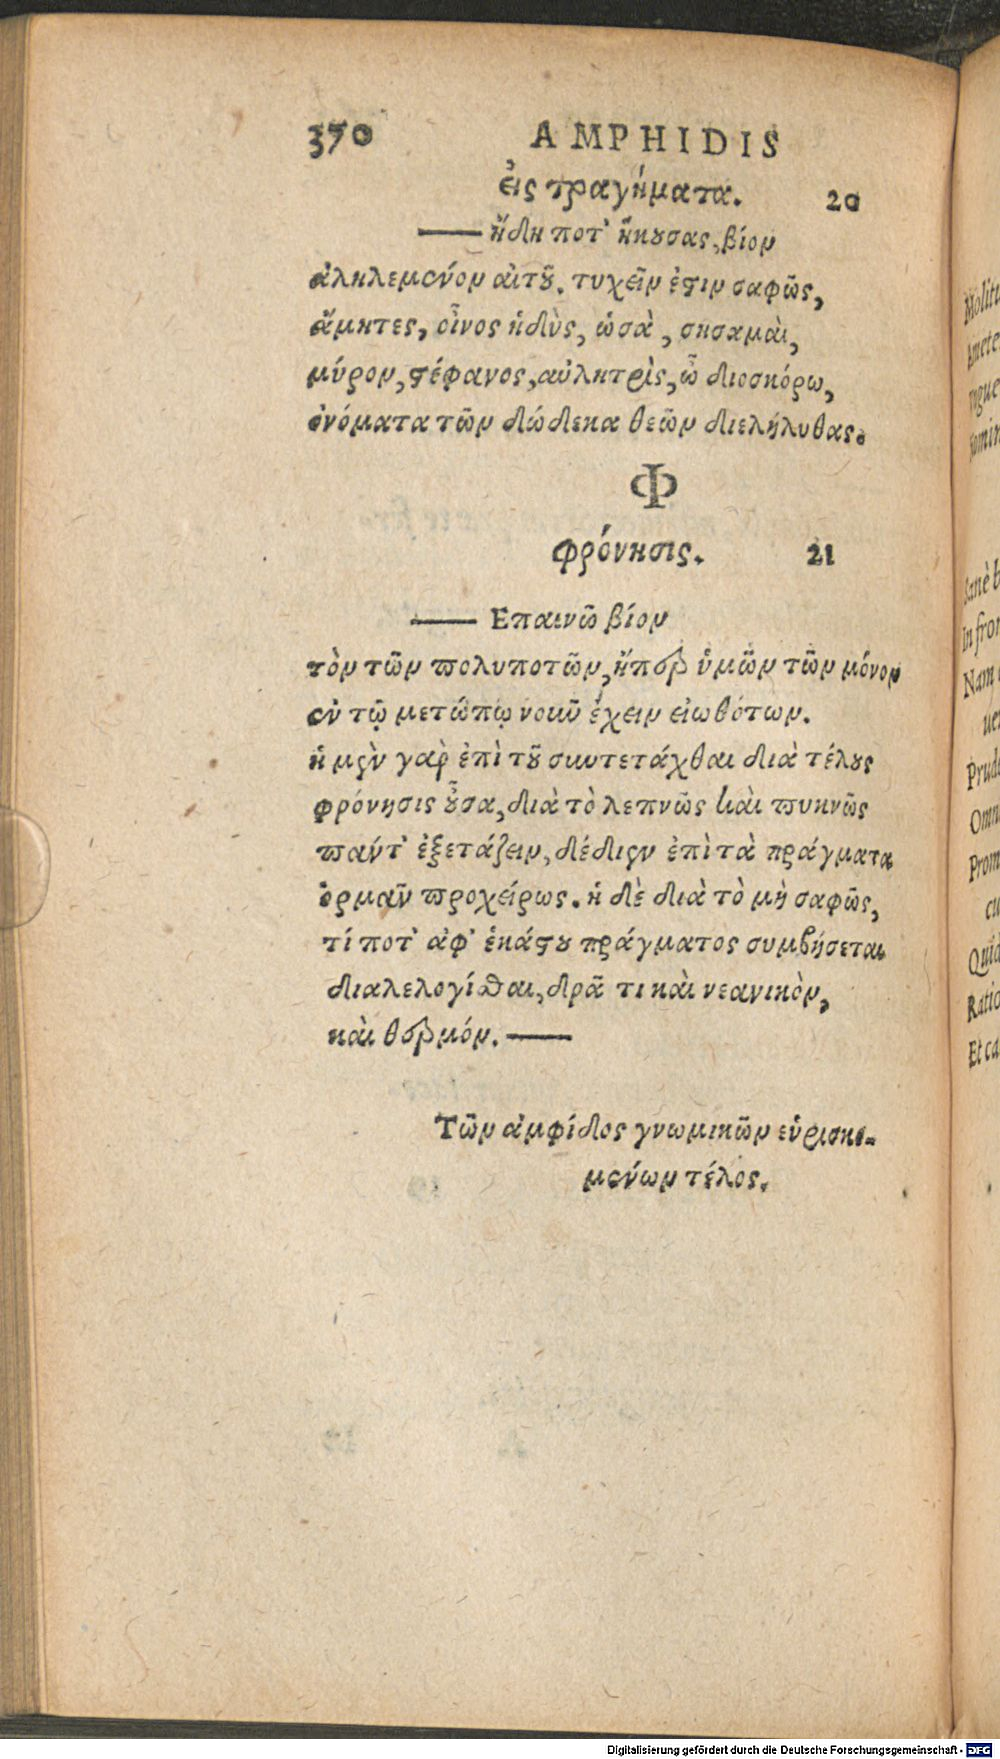 370 AMPHIDIS
εἰς τραγήματα. 20
— ἤδη ποτ᾽ ἤκουσας, βίον
ἀληλεμένον αἰτοῦ. τυχεῖν ἐστιν σαφῶς,
ἄμητες, οἶνος ἡδὺς, ὠσὰ, σησαμαὶ,
μύρον, στέφανος, αὐλητρὶς, ὦ διοσκόρω,
ὀνόματα τῶν δώδεκα θεῶν διελήλυθας.
Φ
φρόνησις. 21
— Επαινῶ βίον
τὸν τῶν πολυποτῶν, ἤπερ ὑμῶν τῶν μόνον
ἐν τῷ μετώπῳ νοῦν ἔχειν εἰωθότων.
ἡ μὲν γαρ̀ ἐπὶ τοῦ συντετάχθαι διὰ τέλους
φρόνησις οὖσα, διὰ τὸ λεπνῶς καὶ πυκνῶς
παντ᾽ ἐξετάζειν, δέδιεν ἐπὶ τὰ πράγματα
ὁρμᾶν προχείρως. ἡ δὲ διὰ τὸ μὴ σαφῶς,
τί ποτ᾽ ἀφ᾽ ἑκάστου πράγματος συμβήσεται
διαλελογίσθαι, δρᾶ τι καὶ νεανικὸν,
καὶ θερμόν. —
Τῶν ἀμφίδος γνωμικῶν εὑρισκο-
μένων τέλος.
Molitu
Amete
ungue
nomin
Sanè b
In fron
Nam
ue
Prud
Omn
Prom
cu
Quid
Ratio
Et ca
Digitalisierung gefördert durch die Deutsche Forschungsgemeinschaft - DFG